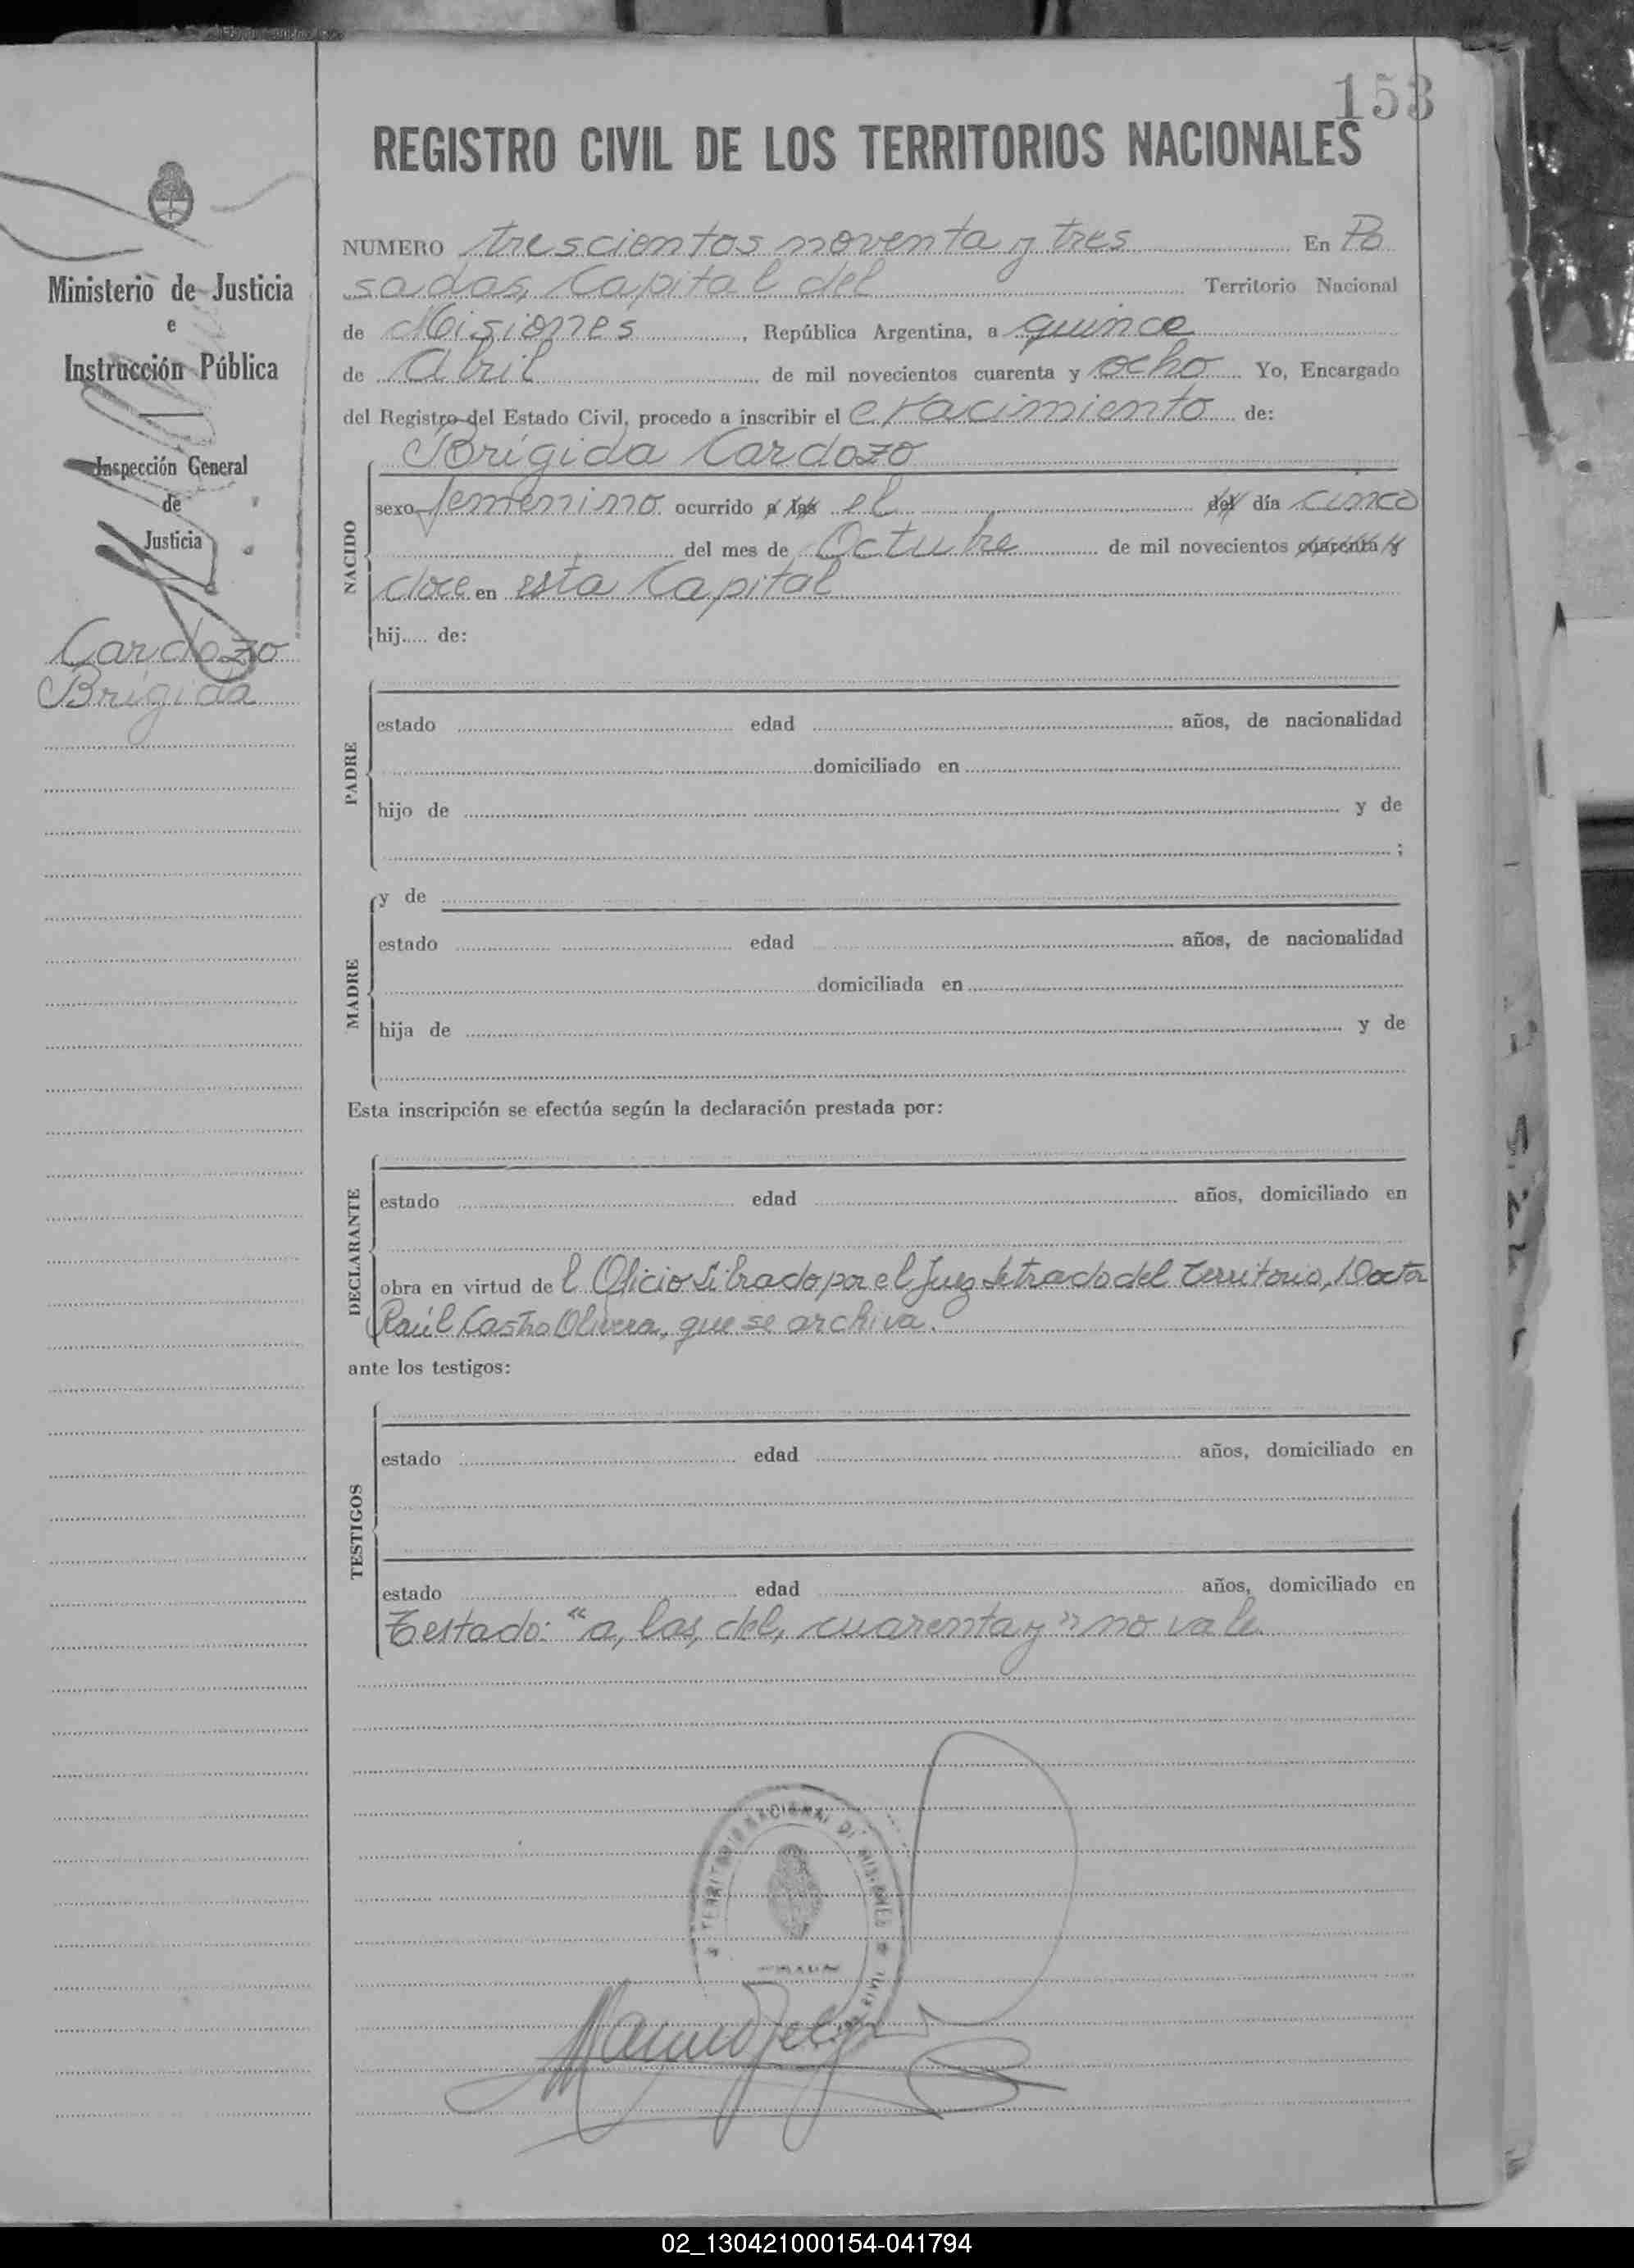 153
REGISTRO CIVIL DE LOS TERRITORIOS NACIONALES
Ministerio de Justicia
e
Instrucción Pública
Inspección General
de
Justicia
Cardozo
Brígida
NUMERO trescientos noventa y tres En Po
sadas, Capital del Territorio Nacional
de Misiones, República Argentina, a quince
de Abril de mil novecientos cuarenta y ocho Yo, Encargado
del Registro del Estado Civil, procedo a inscribir el Nacimiento de:
Brígida Cardozo
NACIDO
sexo femenino ocurrido a las el del día cinco
del mes de Octubre de mil novecientos cuarenta y
doce en esta Capital
hij..... de:
PADRE
estado edad años, de nacionalidad
domiciliado en
hijo de y de
;
MADRE
y de
estado edad años, de nacionalidad
domiciliada en
hija de y de
Esta inscripción se efectúa según la declaración prestada por:
DECLARANTE
estado edad años, domiciliado en
obra en virtud de l Oficio Librado por el Juez Letrado del Territorio, Doctor
Raúl Castro Olivera, que se archiva.
ante los testigos:
TESTIGOS
estado edad años, domiciliado en
estado edad años, domiciliado en
Testado: "a, las, del, cuarenta y" no vale
TERRITORIO NACIONAL DE MISIONES
02_130421000154-041794